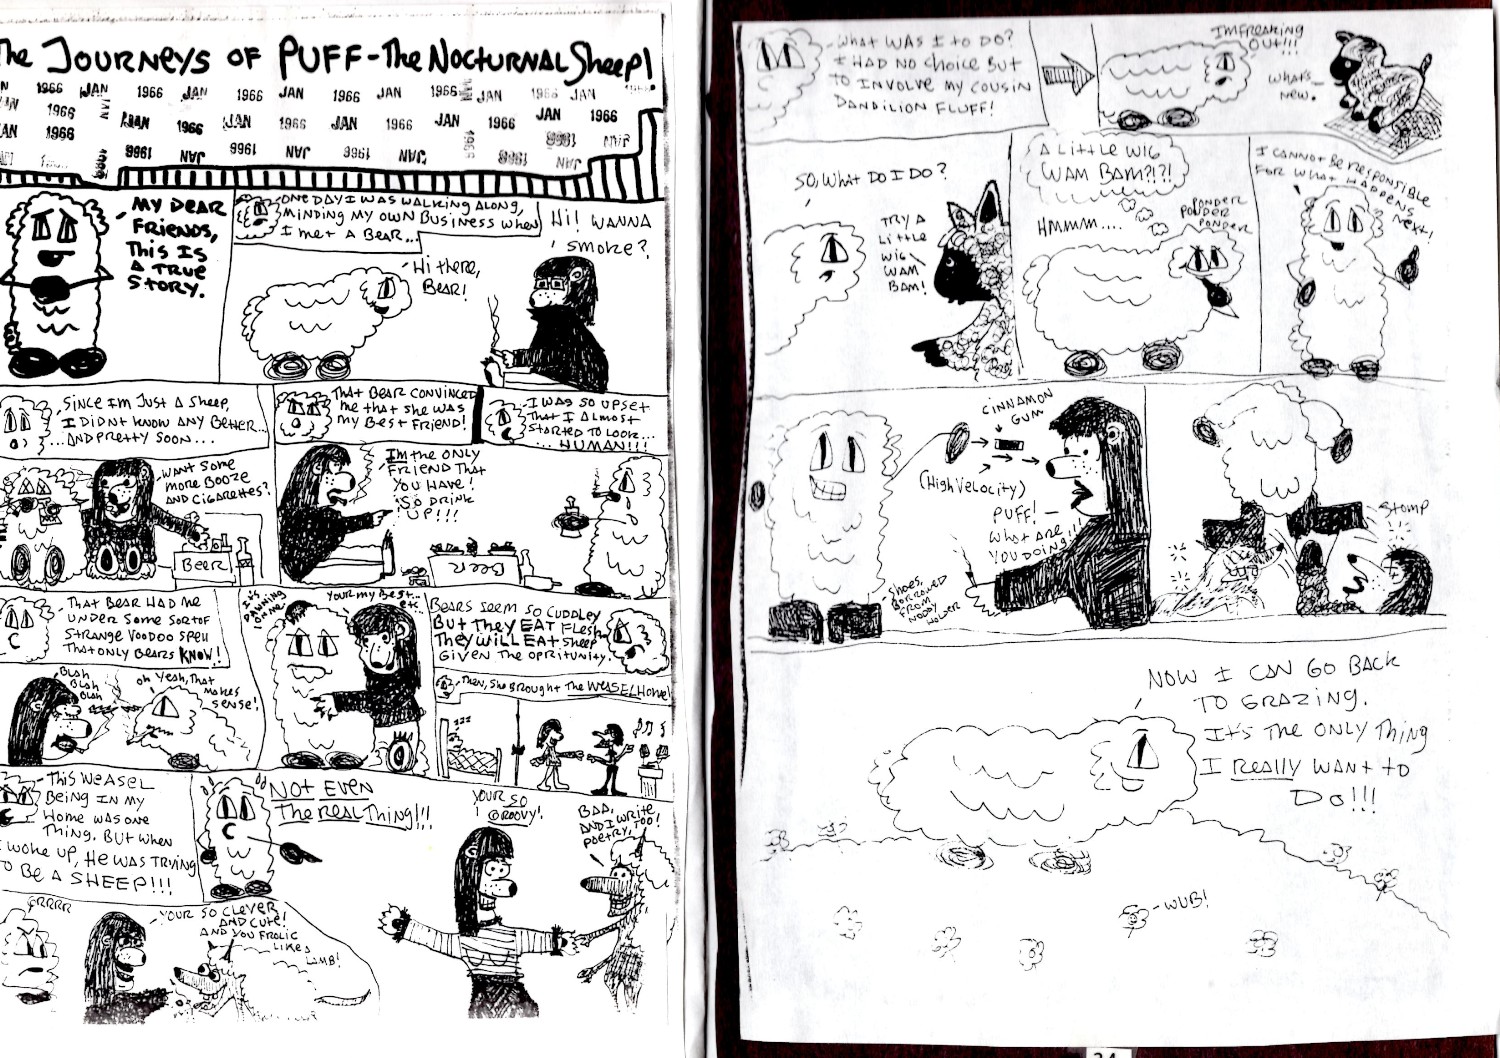 The Journeys of Puff-The Nocturnal Sheep!
1966 JAN 1966 JAN 1966 JAN 1966 JAN 1966 JAN 1966 JAN
1966 JAN 1966 JAN 1966 JAN
JAN 1966 JAN 1966 JAN 1966 JAN 1966 JAN 1966 JAN 1966
1966 JAN 1966 JAN 1966 JAN 1966 JAN 1966 JAN
MY DEAR
FRIENDS,
THIS IS
A TRUE
STORY.
ONE DAY I WAS WALKING ALONG,
MINDING MY OWN BUSINESS WHEN
I MET A BEAR...
Hi there,
BEAR!
Hi! WANNA
SMOKE?
SINCE I'M JUST A SHEEP,
I DIDNT KNOW ANY BETTER...
...AND PRETTY SOON...
WANT SOME
MORE BOOZE
AND CIGARETTES?
BEER
THAT BEAR CONVINCED
ME THAT SHE WAS
MY BEST FRIEND!
I WAS SO UPSET
THAT I ALMOST
STARTED TO LOOK...
... HUMAN!!!
IM THE ONLY
FRIEND THAT
YOU HAVE!
SO DRINK
UP!!!
BEER
THAT BEAR HAD ME
UNDER SOME SORT OF
STRANGE VOODOO SPELL
THAT ONLY BEARS KNOW!
BLAH
BLAH
BLAH
oh Yeah, That
makes
sense!
YOUR MY BEST...
etc.
BEARS SEEM SO CUDDLEY
BUT THEY EAT FLESH
THEY WILL EAT SHEEP
GIVEN THE OPRITUNITY.
THEN, SHE BROUGHT THE WEASEL HOME!
ZZZ
THIS WEASEL
BEING IN MY
HOME WAS ONE
THING. BUT WHEN
I WOKE UP, HE WAS TRYING
TO BE A SHEEP!!!
NOT EVEN
THE REAL THING!!!
GRRRR
YOUR SO CLEVER
AND CUTE!
AND YOU FROLIC
LIKE A
LAMB!
YOUR SO
GROOVY!
BAA,
AND I WRITE
POETRY, TOO!
WHAT WAS I TO DO?
I HAD NO CHOICE BUT
TO INVOLVE MY COUSIN
DANDILION FLUFF!
IM FREAKING
OUT!!!
WHATS
NEW.
SO, WHAT DO I DO?
TRY A
LITTLE
WIG
WAM
BAM!
A LITTLE WIG
WAM BAM?!?!
HMMM....
PONDER
PONDER
PONDER
I CANNOT BE RESPONSIBLE
FOR WHAT HAPPENS
NEXT!
CINNAMON
GUM
(HIGH VELOCITY)
PUFF!
WHAT ARE
YOU DOING!!!
SHOES,
BORROWED
FROM
NODDY
HOLDER
STOMP
NOW I CAN GO BACK
TO GRAZING.
IT'S THE ONLY THING
I REALLY WANT TO
DO!!!
WUB!